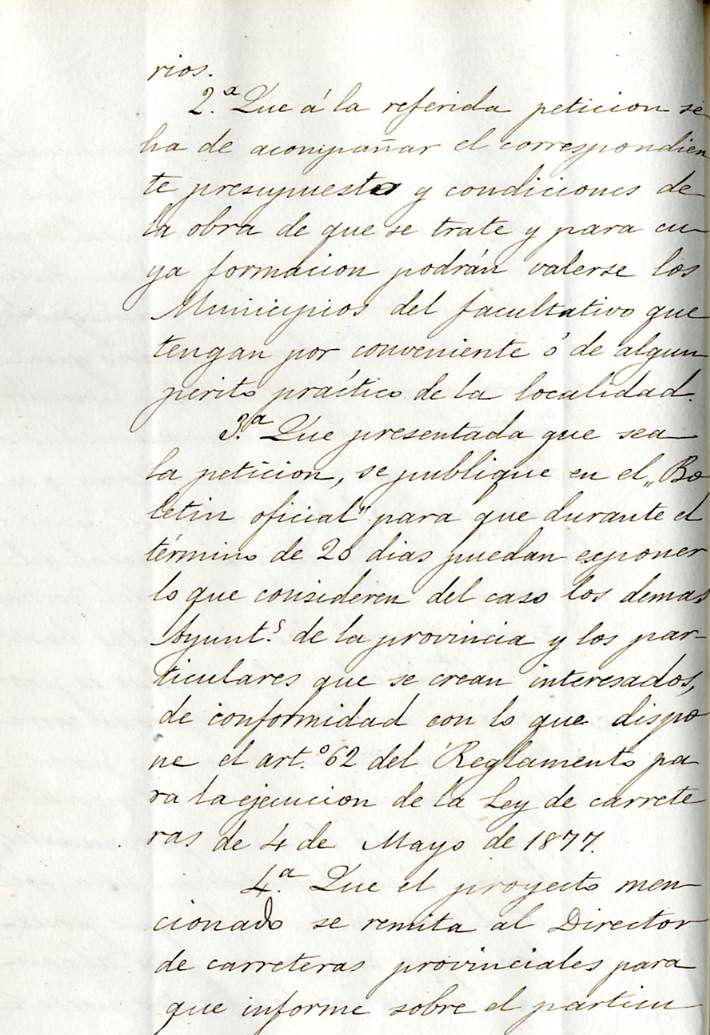 rios.
2.ª Que á la referida peticion se
ha de acompañar el correspondien
te presupuesto y condiciones de
la obra de que se trate y para cu-
ya formacion podrán valerse los
Municipios del facultativo que
tengan por conveniente ó de algun
perito práctico de la localidad.
3.ª Que presentada que sea
la peticion, se publique en el „Bo
letin oficial" para que durante el
término de 20 dias puedan esponer
lo que consideren del caso los demas
Ayunt.s de la provincia y los par-
ticulares que se crean interesados,
de conformidad con lo que dispo
ne el art.º 62 del Reglamento pa
ra la ejecucion de la Ley de carrete
ras de 4 de Mayo de 1877.
4.ª Que el proyecto men-
cionado se remita al Director
de carreteras provinciales para
que informe sobre el particu